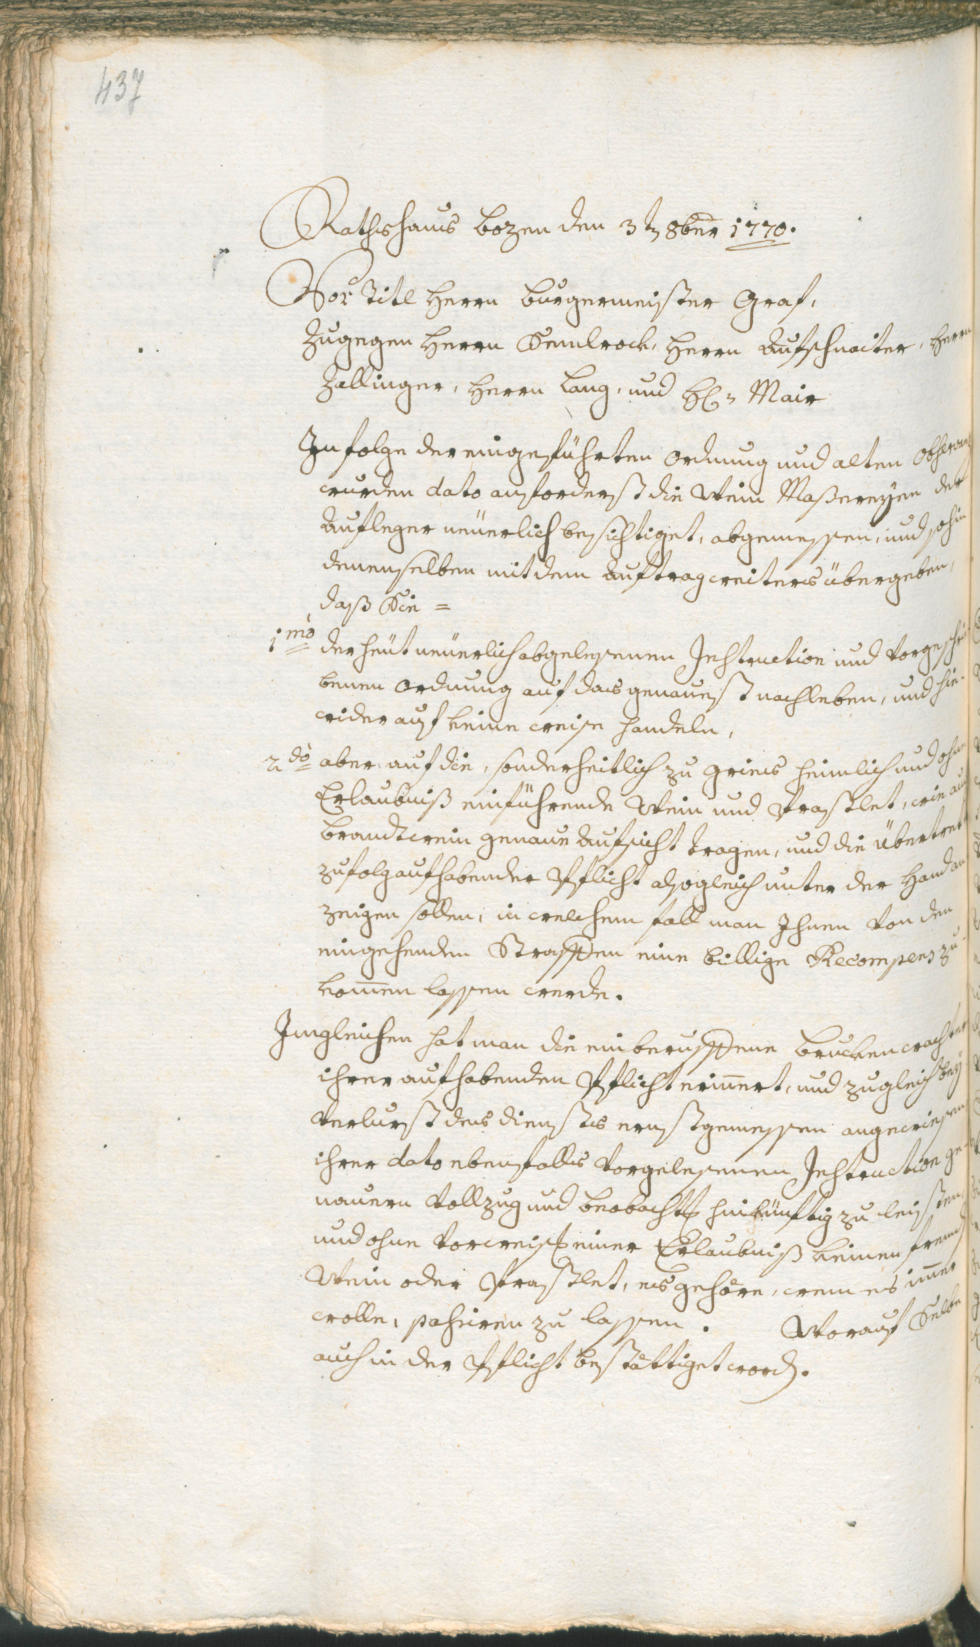 437
Rathshaus Bozen den 3t 8ber 1770.
Vor Titl Herrn Burgermeister Graf,
zugegen Herrn Kemlrock, Herrn Aufschnaiter, Herrn
Zallinger, Herrn Lang, und H: Mair
In folge der eingeführten Ordnung und alten Observanz
wurden dato anforderst die Wein Maßereyen der
Aufleger neuerlich besichtiget, abgemessen, und sohin
denenselben mit dem Auftrag weiters übergeben,
daß Sie =
1mo der heut neuerlich abgelesenen Instruction und vorgeschri
benen Ordnung auf das genaueste nachleben, und hie-
wider auf keine weise handeln,
2do aber auf die, sonderheitlich zu Gries heimlich und ohne
Erlaubniß einführende Wein und Praschlet, wie auch
Brandtwein genaue Aufsicht tragen, und die Übertretter
zufolg aufhabender Pflicht alsogleich unter der Hand an
zeigen sollen, in welchem fall man Ihnen von den
eingehenden Straffen eine billige Recompens zu
kommen lassen werde.
Imgleichen hat man die einberuffene Bruckenwachter
ihrer aufhabenden Pflicht erinnert, und zugleich bey
Verlurst des diensts ernstgemessen angewiesen
ihrer dato ebenfalls vorgelesenen Instruction ge-
nauen Vollzug und Beobacht hinkünftig zu leisten,
und ohne vorweist einer Erlaubniß keinen fremd
Wein oder Praschlet, es gehöre, wem es immer
wolle, pahsiren zu lassen. Worauf Selbe
auch in der Pflicht bestättiget word.